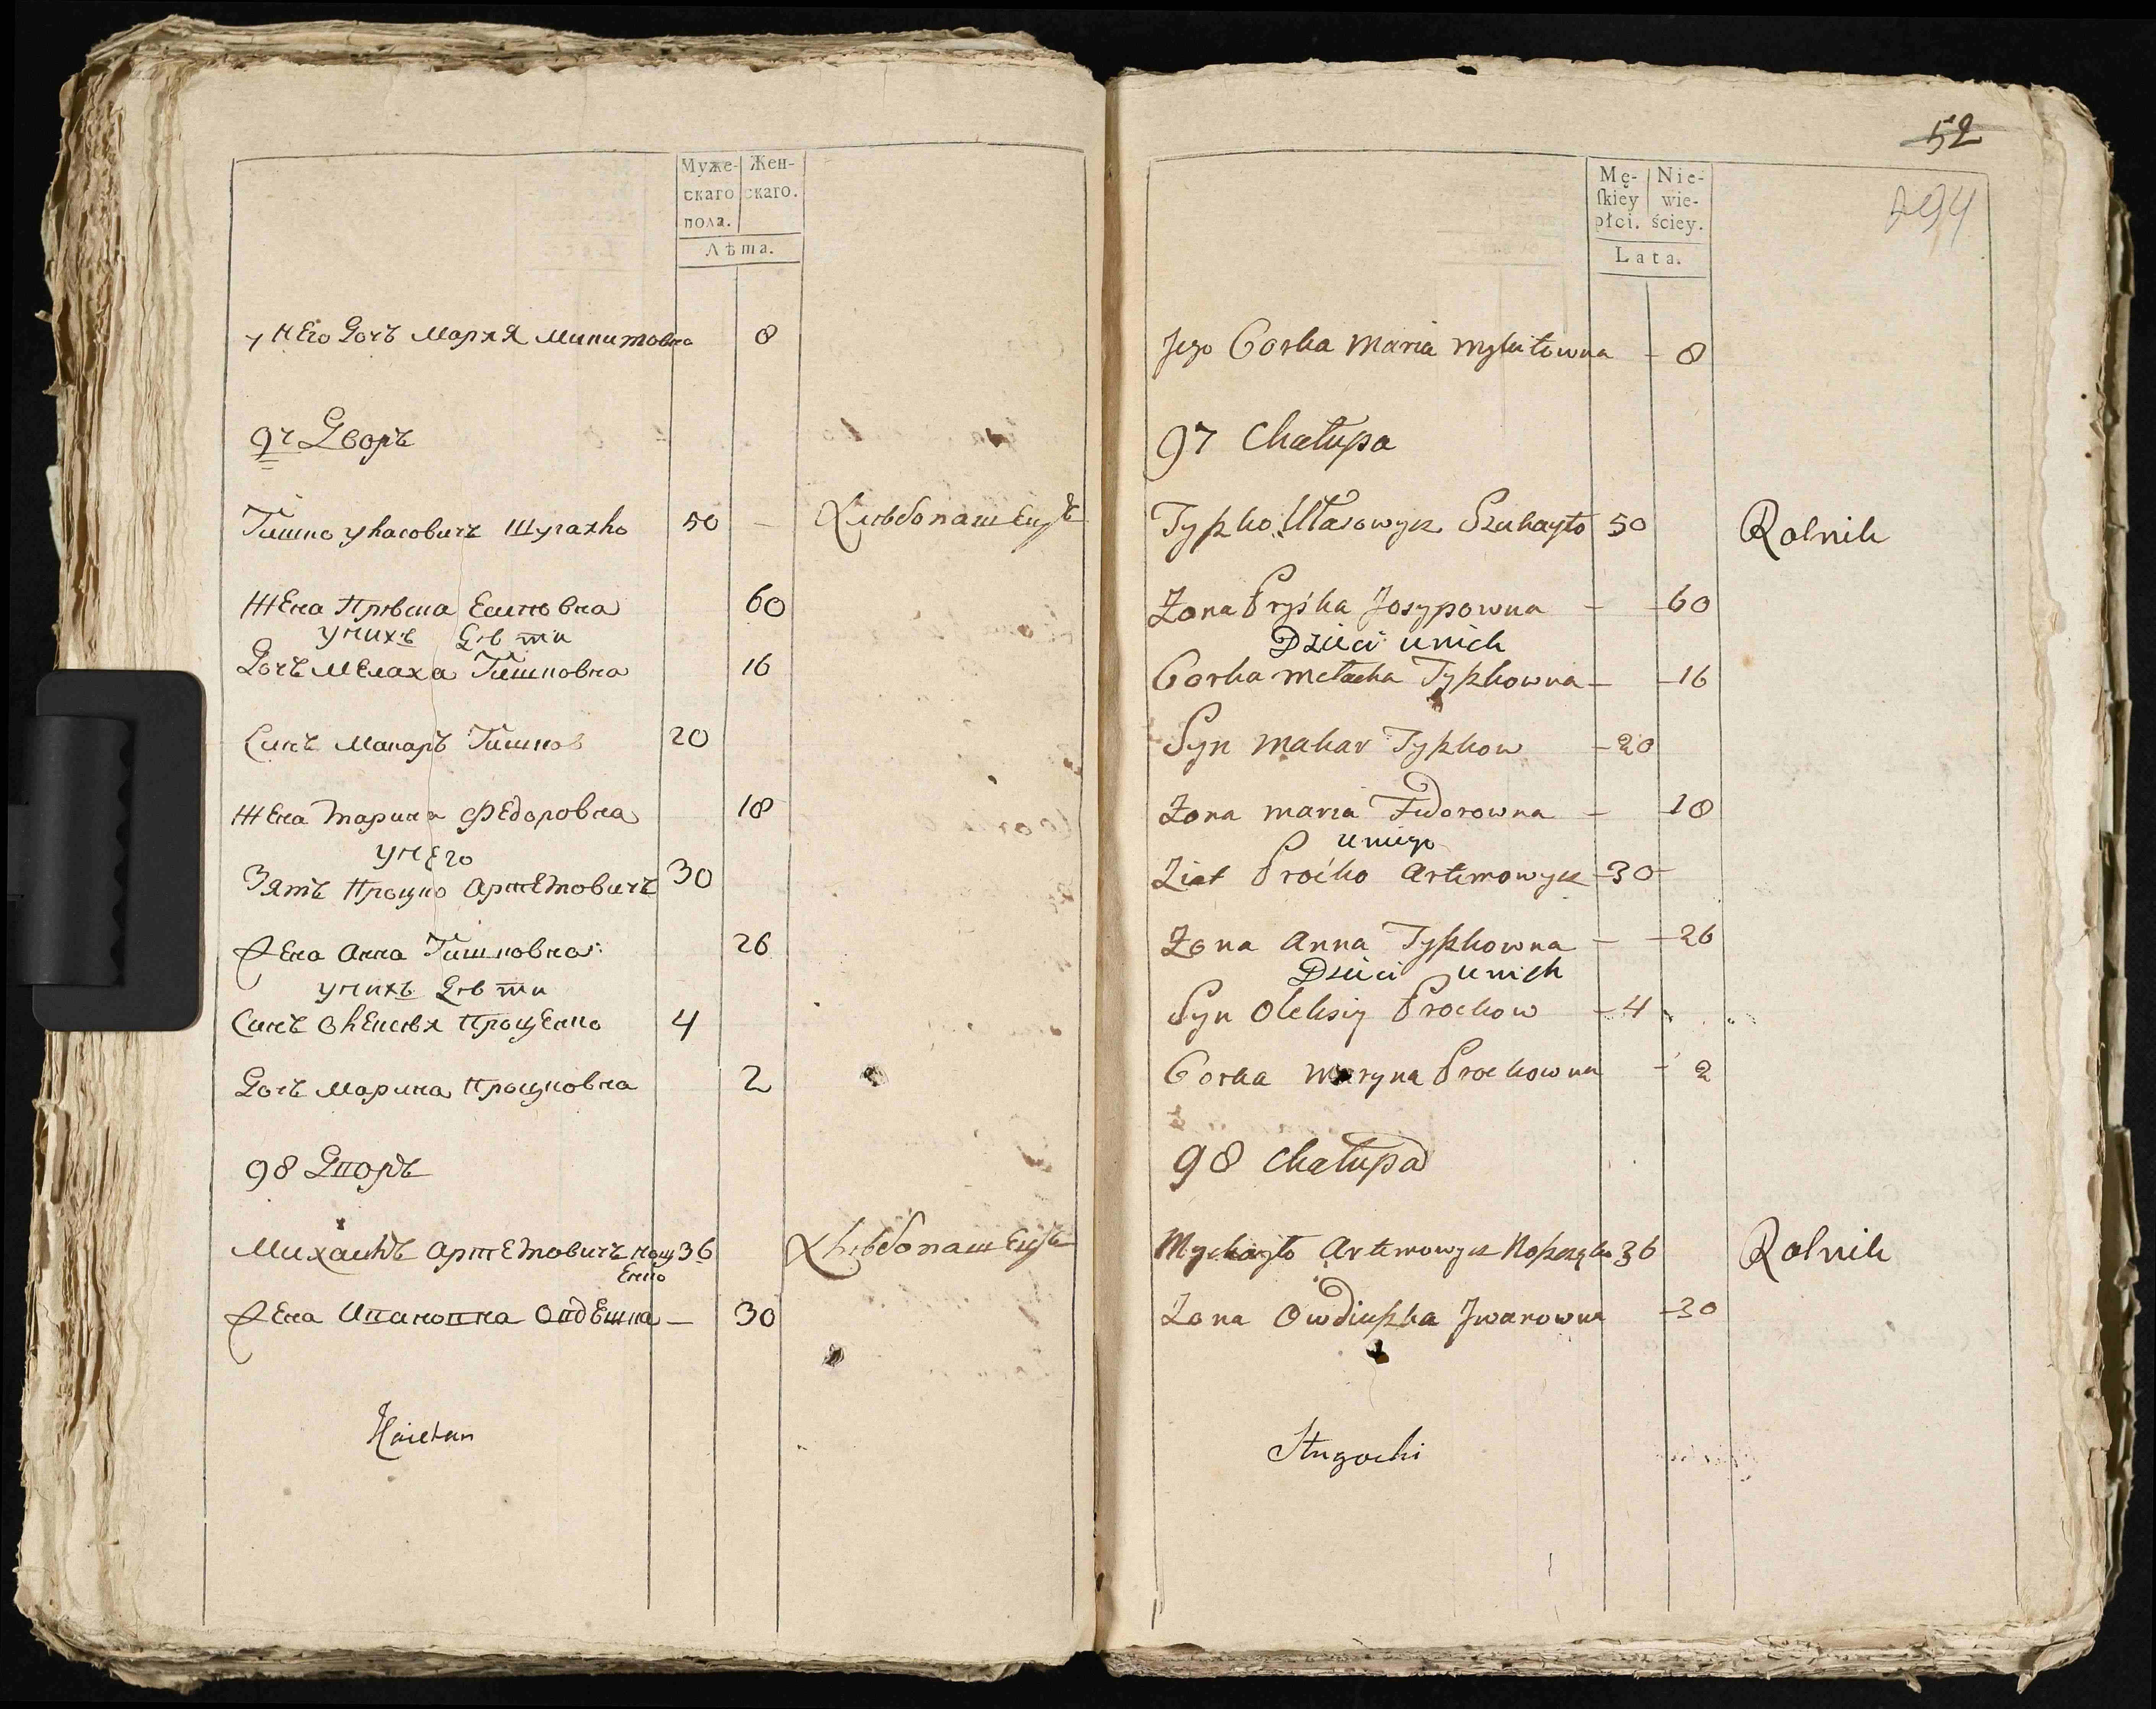 Муже-
скаго
пола.
Жен-
скаго.
Лѣта.
у него дочъ Мария Микитовна 8
97 Дворъ
Тишко Уласовичъ Шугайло 50 - Хлѣбопашецъ
Жена Прѣська Есиповна 60
у нихъ дѣти
Дочъ Мелаха Тишковна 16
Синъ Макаръ Тишков 20
Жена Марина Федоровна 18
у него
Зять Процко Артемовичъ 30
Жена Анна Тишковна 26
у нихъ дѣти
Синъ Олексѣй Проценко 4
Дочъ Марина Процковна 2
98 Дворъ
Михайлъ Артемовичъ Нощ 36 Хлѣбопашецъ
енко
Жена Ивановна Овдешка - 30
Kaietan
52
794
Mę-
ſkiey
płci.
Nie-
wie-
ściey.
Lata.
Jego Corka Maria Mykitowna - 8
97 Chałupa
Tyszko Ułasowycz Szuhayło 50 Rolnik
Zona Pryśka Josypowna - - 60
Dzieci u nich
Corka Mełacha Tyszkowna - - 16
Syn Makar Tyszkow - 20
Zona Maria Fedorowna - - 18
u niego
Ziat Proćko Artemowycz - 30 -
Zona Anna Tyszkowna - - 26
Dzieci u nich
Syn Oleksiy Prockow - 4
Corka Maryna Prockowna - 2
98 Chałupa
Mychayło Artemowycz 36 Rolnik
Zona Owdiuszka Jwanowna - 30